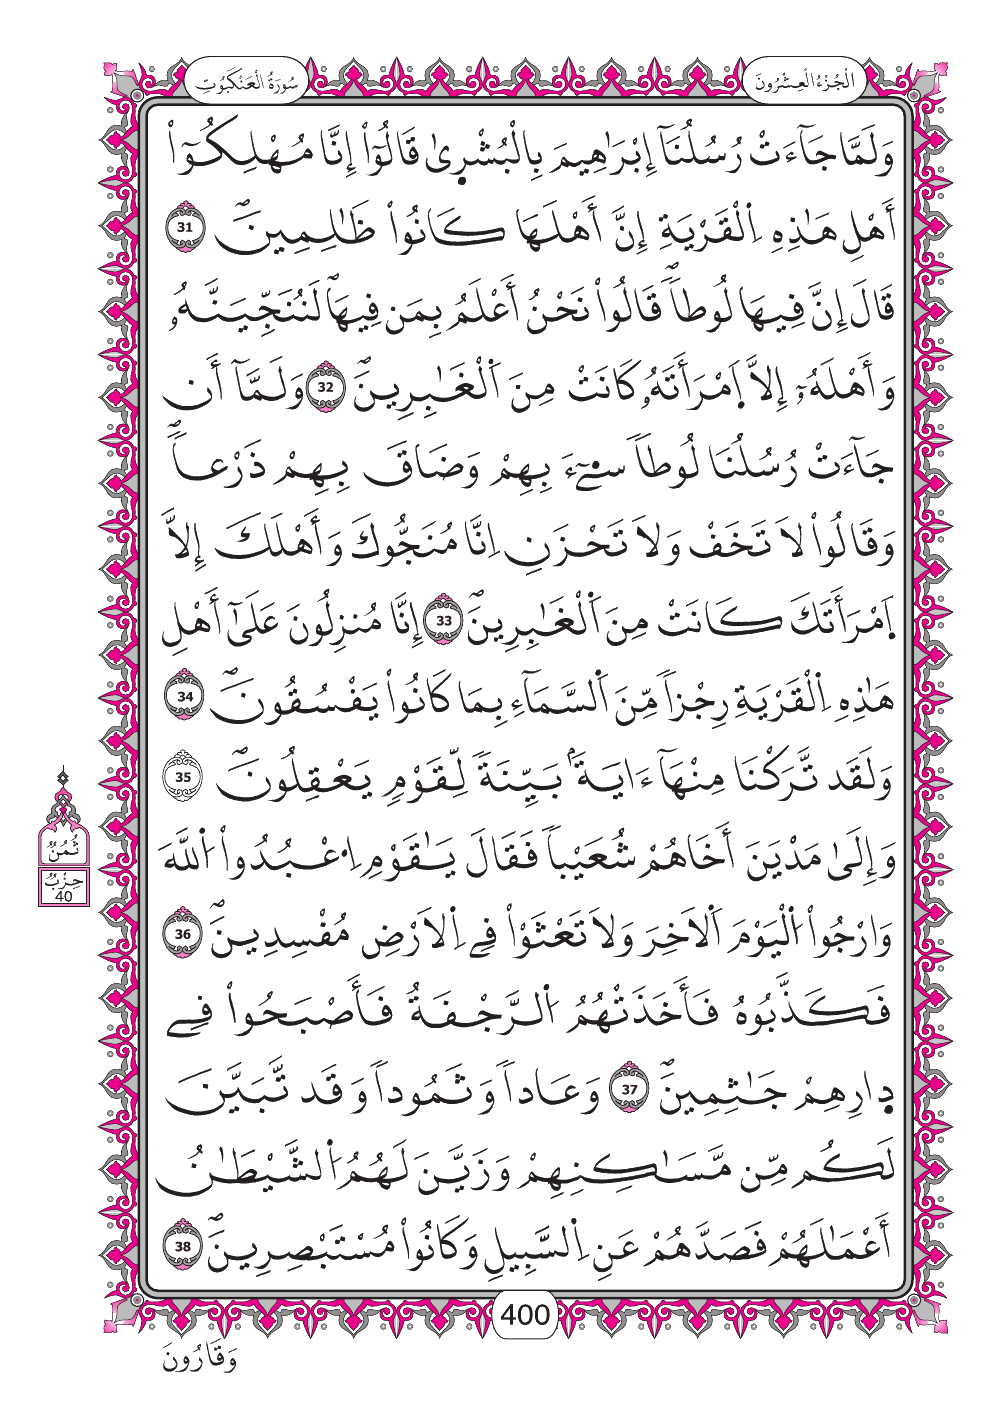 الْجُزْءُ الْعِشْرُونَ
سُورَةُ الْعَنْكَبُوتِ
وَلَمَّا جَآءَتْ رُسُلُنَآ إِبْرَٰهِيمَ بِالْبُشْرۭىٰ قَالُوٓاْ إِنَّا مُهْلِكُوٓاْ
أَهْلِ هَٰذِهِ اِ۬لْقَرْيَةِ إِنَّ أَهْلَهَا كَانُواْ ظَٰلِمِينَۖ 31
قَالَ إِنَّ فِيهَا لُوطاٗۖ قَالُواْ نَحْنُ أَعْلَمُ بِمَن فِيهَاۖ لَنُنَجِّيَنَّهُۥ
وَأَهْلَهُۥٓ إِلَّا اَ۪مْرَأَتَهُۥ كَانَتْ مِنَ اَ۬لْغَٰبِرِينَۖ 32 وَلَمَّآ أَن
جَآءَتْ رُسُلُنَا لُوطاٗ سِےٓءَ بِهِمْ وَضَاقَ بِهِمْ ذَرْعاٗۖ
وَقَالُواْ لَا تَخَفْ وَلَا تَحْزَنِ اِنَّا مُنَجُّوكَ وَأَهْلَكَ إِلَّا
اَ۪مْرَأَتَكَ كَانَتْ مِنَ اَ۬لْغَٰبِرِينَۖ 33 إِنَّا مُنزِلُونَ عَلَىٰٓ أَهْلِ
هَٰذِهِ اِ۬لْقَرْيَةِ رِجْزاٗ مِّنَ اَ۬لسَّمَآءِ بِمَا كَانُواْ يَفْسُقُونَۖ 34
وَلَقَد تَّرَكْنَا مِنْهَآ ءَايَةَۢ بَيِّنَةٗ لِّقَوْمٖ يَعْقِلُونَۖ 35
وَإِلَىٰ مَدْيَنَ أَخَاهُمْ شُعَيْباٗ فَقَالَ يَٰقَوْمِ اِ۟عْبُدُواْ اُ۬للَّهَ
وَارْجُواْ اُ۬لْيَوْمَ اَ۬لَاخِرَ وَلَا تَعْثَوْاْ فِے اِ۬لَارْضِ مُفْسِدِينَۖ 36
فَكَذَّبُوهُ فَأَخَذَتْهُمُ اُ۬لرَّجْفَةُ فَأَصْبَحُواْ فِے
دِارِهِمْ جَٰثِمِينَۖ 37 وَعَاداٗ وَثَمُوداٗ وَقَد تَّبَيَّنَ
لَكُم مِّن مَّسَٰكِنِهِمْ وَزَيَّنَ لَهُمُ اُ۬لشَّيْطَٰنُ
أَعْمَٰلَهُمْ فَصَدَّهُمْ عَنِ اِ۬لسَّبِيلِ وَكَانُواْ مُسْتَبْصِرِينَۖ 38
ثُمُنُ
حِزْبُ
40
400
وَقَارُونَ